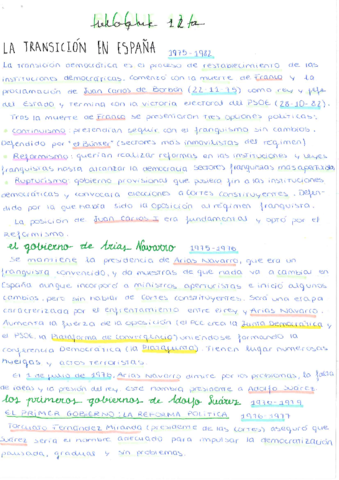 12 b
LA TRANSICIÓN EN ESPAÑA 1975-1982
La transición democrática es el proceso de restablecimiento de las
instituciones democráticas. Comenzó con la muerte de Franco y la
proclamación de Juan Carlos de Borbón (22-11-75) como rey y jefe
del Estado y termina con la victoria electoral del PSOE (28-10-82).
Tras la muerte de Franco se presentaron tres opciones políticas:
Continuismo: pretendían seguir con el franquismo sin cambios.
Defendido por "el Búnker" (sectores más inmovilistas del régimen)
Reformismo: querían realizar reformas en las instituciones y leyes
franquistas hasta alcanzar la democracia. Sectores franquistas más aperturistas
Rupturismo: gobierno provisional que pusiera fin a las instituciones
democráticas y convocara elecciones a Cortes Constituyentes. Defen-
dido por la que había sido la oposición al régimen franquista.
La posición de Juan Carlos I era fundamental y optó por el
reformismo.
el gobierno de Arias Navarro 1975-1976
Se mantiene la presidencia de Arias Navarro, que era un
franquista convencido, y da muestras de que nada va a cambiar en
España aunque incorporó a ministros aperturistas e inició algunos
cambios, pero sin hablar de Cortes constituyentes. Será una etapa
caracterizada por el enfrentamiento entre el rey y Arias Navarro.
Aumenta la fuerza de la oposición (el PCE crea la Junta Democrática y
el PSOE la Plataforma de Convergencia) uniéndose formando la
Convergencia Democrática (la Platajunta). Tienen lugar numerosas
huelgas y actos terroristas.
el 3 de julio de 1976, Arias Navarro dimite por los problemas, la falta
de ideas y la presión del rey. Este nombra presidente a Adolfo Suárez
los primeros gobiernos de Adolfo Suárez 1976-1979
EL PRIMER GOBIERNO: LA REFORMA POLÍTICA 1976-1977
Torcuato Fernández Miranda (presidente de las Cortes) aseguró que
Suárez sería el hombre adecuado para impulsar la democratización
pautada, gradual y sin problemas.